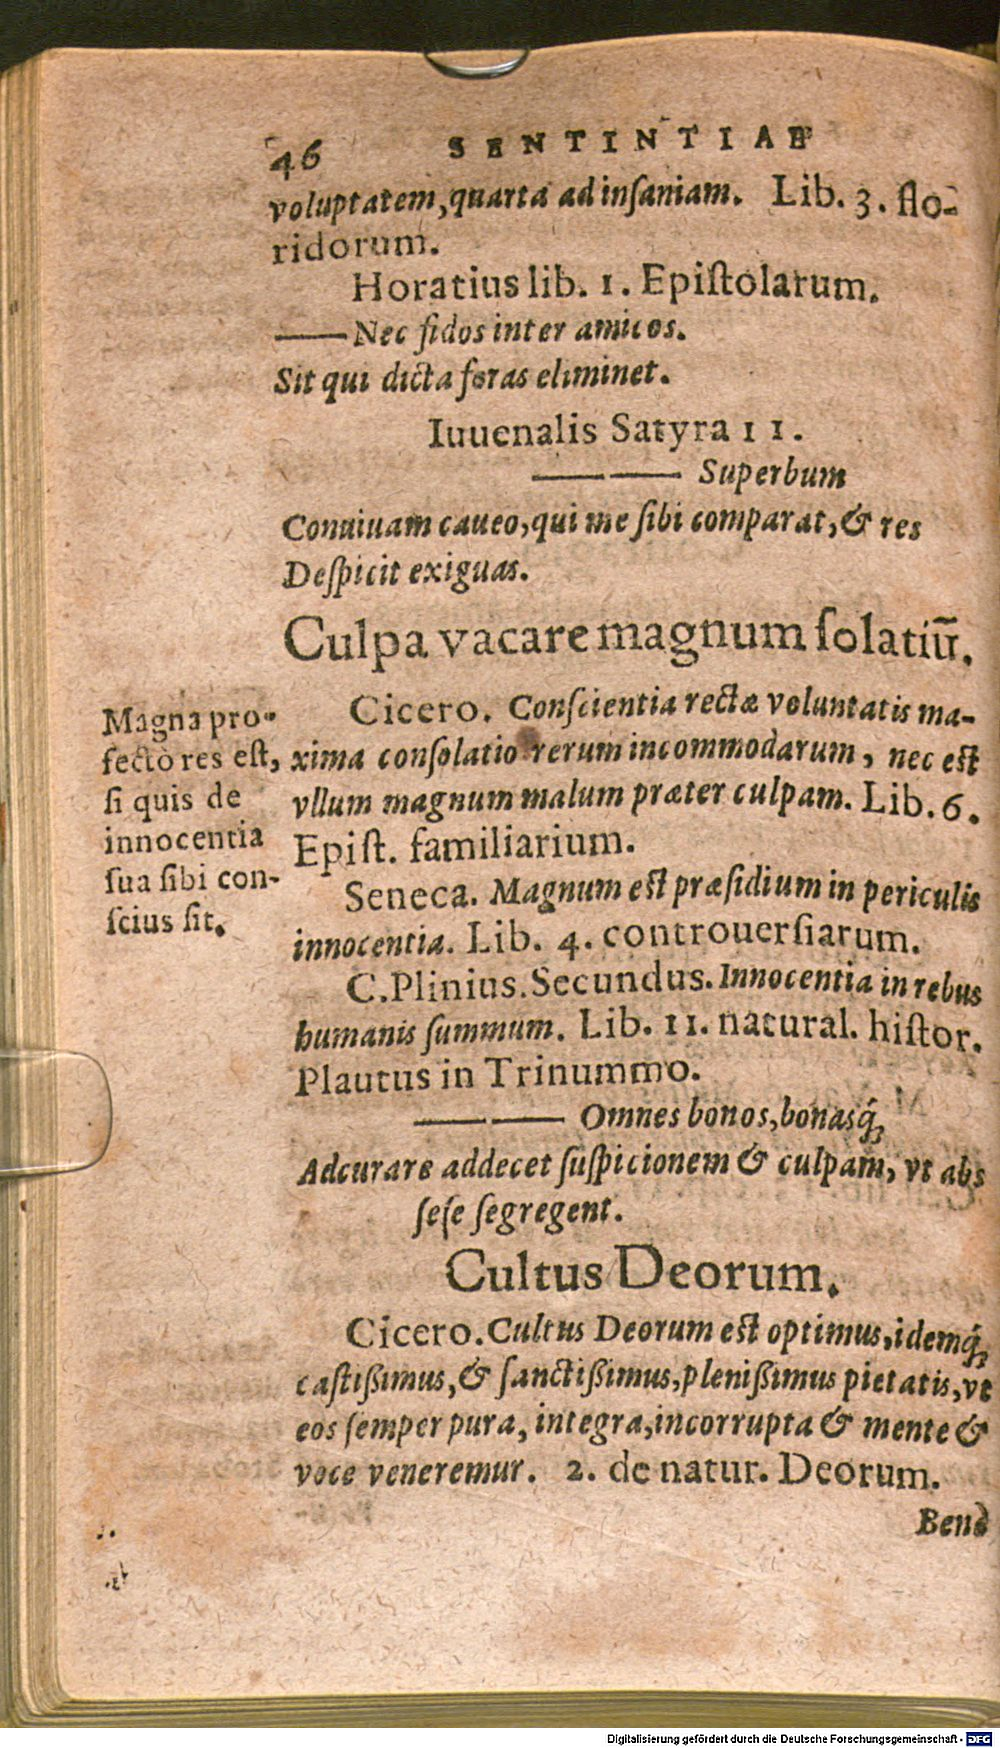 46 SENTINTIAE
voluptatem, quarta ad inſaniam. Lib. 3. flo-
ridorum.
Horatius lib. 1. Epiſtolarum.
—— Nec fidos inter amicos.
Sit qui dicta foras eliminet.
Iuuenalis Satyra 11.
—— —— Superbum
Conuiuam caueo, qui me ſibi comparat, & res
Deſpicit exiguas.
Culpa vacare magnum ſolatiū.
Magna pro-
fecto res eſt,
ſi quis de
innocentia
ſua ſibi con-
ſcius ſit.
Cicero. Conſcientia rectæ voluntatis ma-
xima conſolatio rerum incommodarum, nec eſt
vllum magnum malum præter culpam. Lib. 6.
Epiſt. familiarium.
Seneca. Magnum eſt præſidium in periculis
innocentia. Lib. 4. controuerſiarum.
C. Plinius. Secundus. Innocentia in rebus
humanis ſummum. Lib. 11. natural. hiſtor.
Plautus in Trinummo.
—— —— Omnes bonos, bonasq́;
Adcurare addecet ſuſpicionem & culpam, vt abs
ſeſe ſegregent.
Cultus Deorum.
Cicero. Cultus Deorum eſt optimus, idemq́;
caſtißimus, & ſanctißimus, plenißimus pietatis, vt
eos ſemper pura, integra, incorrupta & mente &
voce veneremur. 2. de natur. Deorum.
Benè
Digitalisierung gefördert durch die Deutsche Forschungsgemeinschaft - DFG